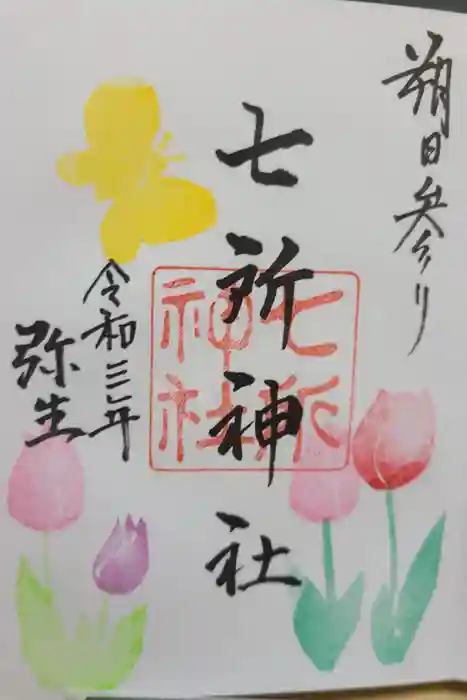 朔日参り
七所神社
七所
神社
令和三年
弥生